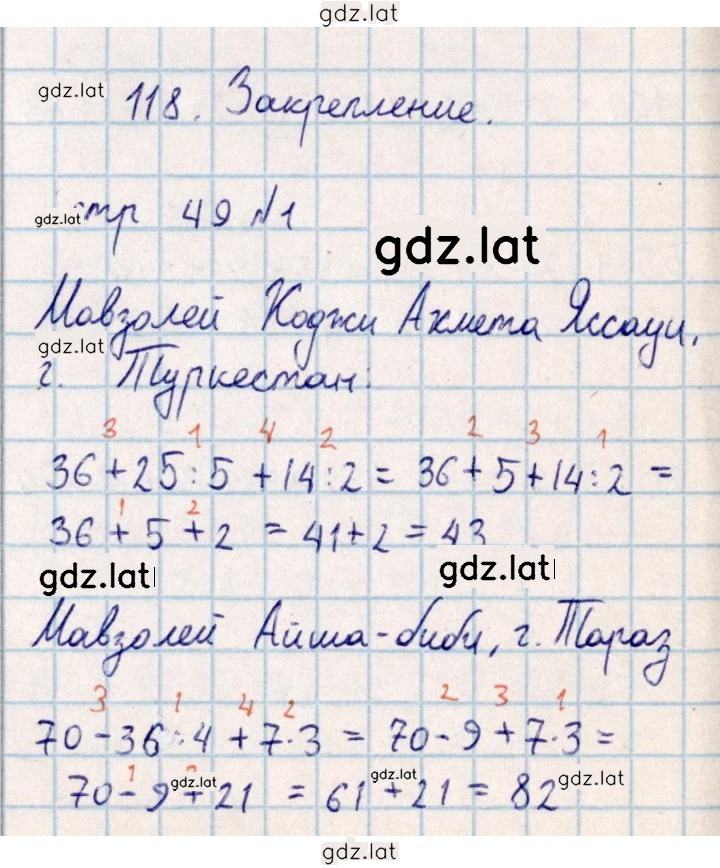 gdz.lat
gdz.lat 118. Закрепление.
gdz.lat стр 49 №1
gdz.lat
Мавзолей Ходжи Ахмета Яссауи,
gdz.lat
г. Туркестан:
3 1 4 2 2 3 1
36+25:5+14:2= 36+5+14:2=
1 2
36+5+2 = 41+2=43
gdz.lat gdz.lat
Мавзолей Айша-биби, г. Тараз
3 1 4 2 2 3 1
70-36:4+7·3= 70-9+7·3=
1 2
70-9+21 = 61+21=82
gdz.lat gdz.lat gdz.lat
gdz.lat